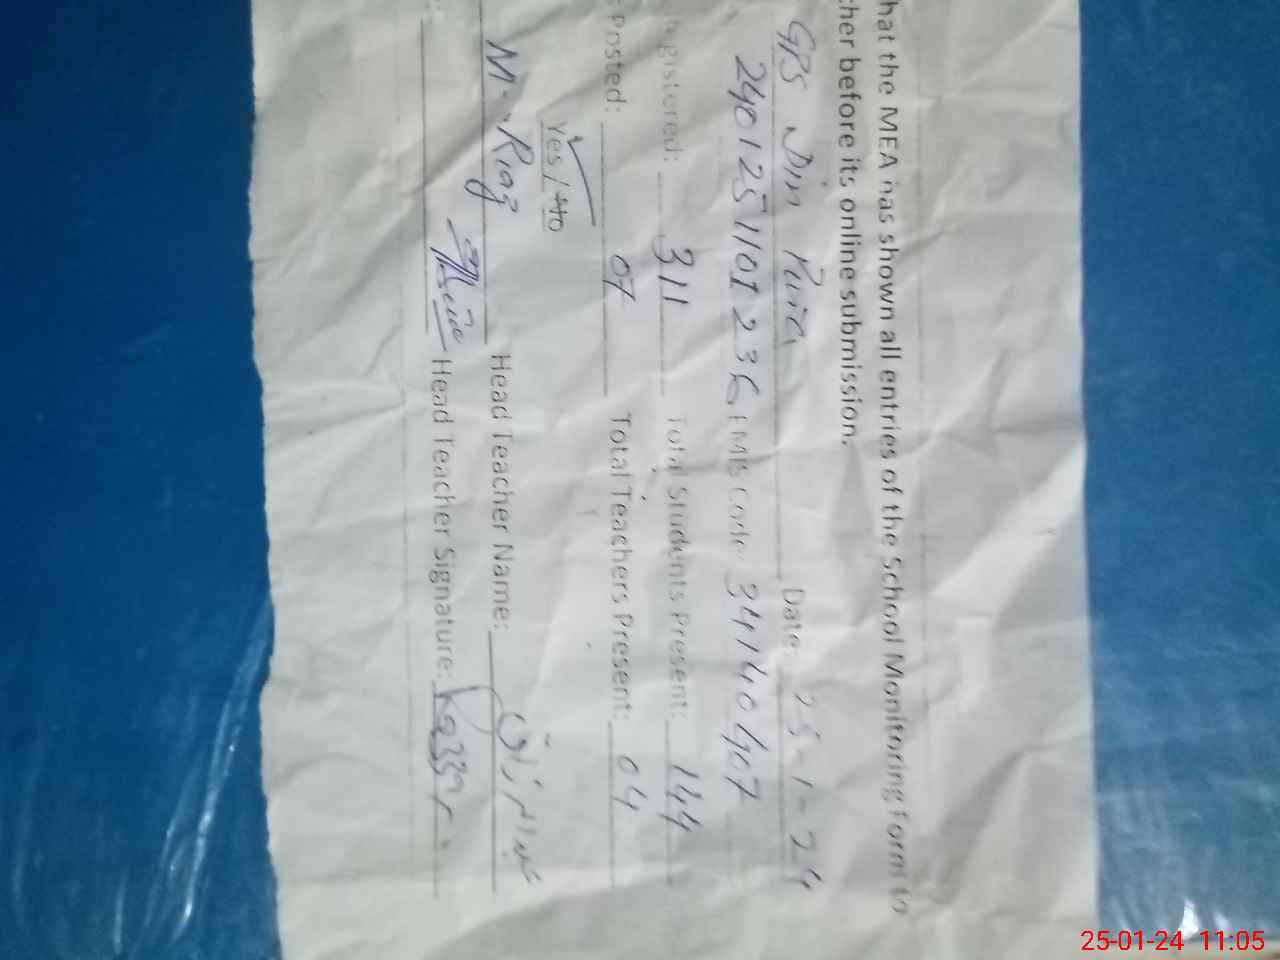 hat the MEA has shown all entries of the School Monitoring Form to
cher before its online submission.
GPS Din Pura Date: 25-1-24
2401251101236 EMIS Code: 34140407
Registered: 311 Total Students Present: 144
s Posted: 07 Total Teachers Present: 04
Yes / No
M. Riaz Head Teacher Name: عبدالرزاق
Head Teacher Signature:
25-01-24 11:05